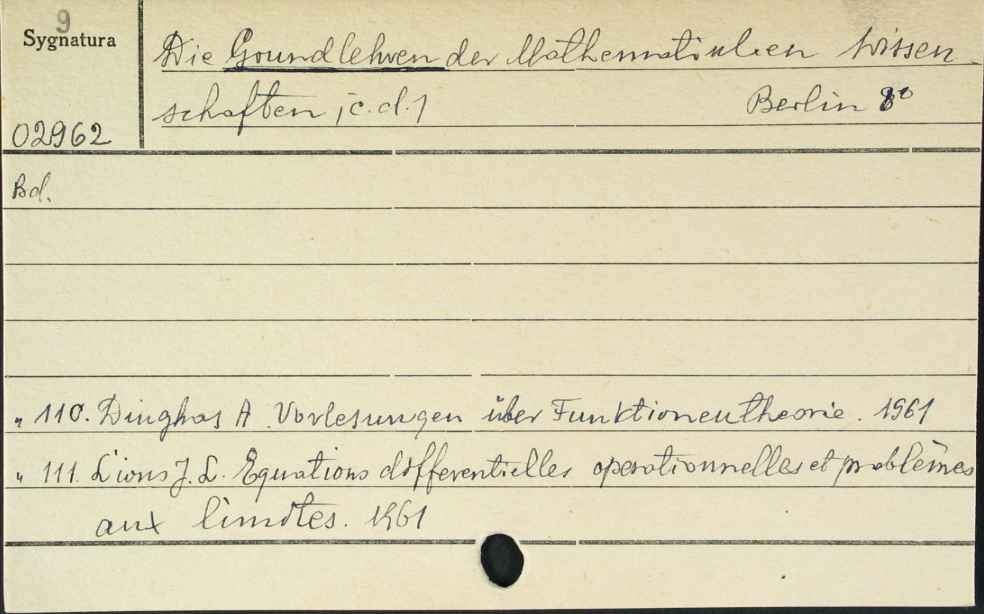 9
Sygnatura
02962
Die Grundlehren der Mathematischen Wissen-
schaften /c.d./ Berlin 8°
Bd.
„ 110. Dinghas A. Vorlesungen über Funktionentheorie. 1961
„ 111. Lions J. L. Equations differentielles operationnelles et problèmes
aux limites. 1961